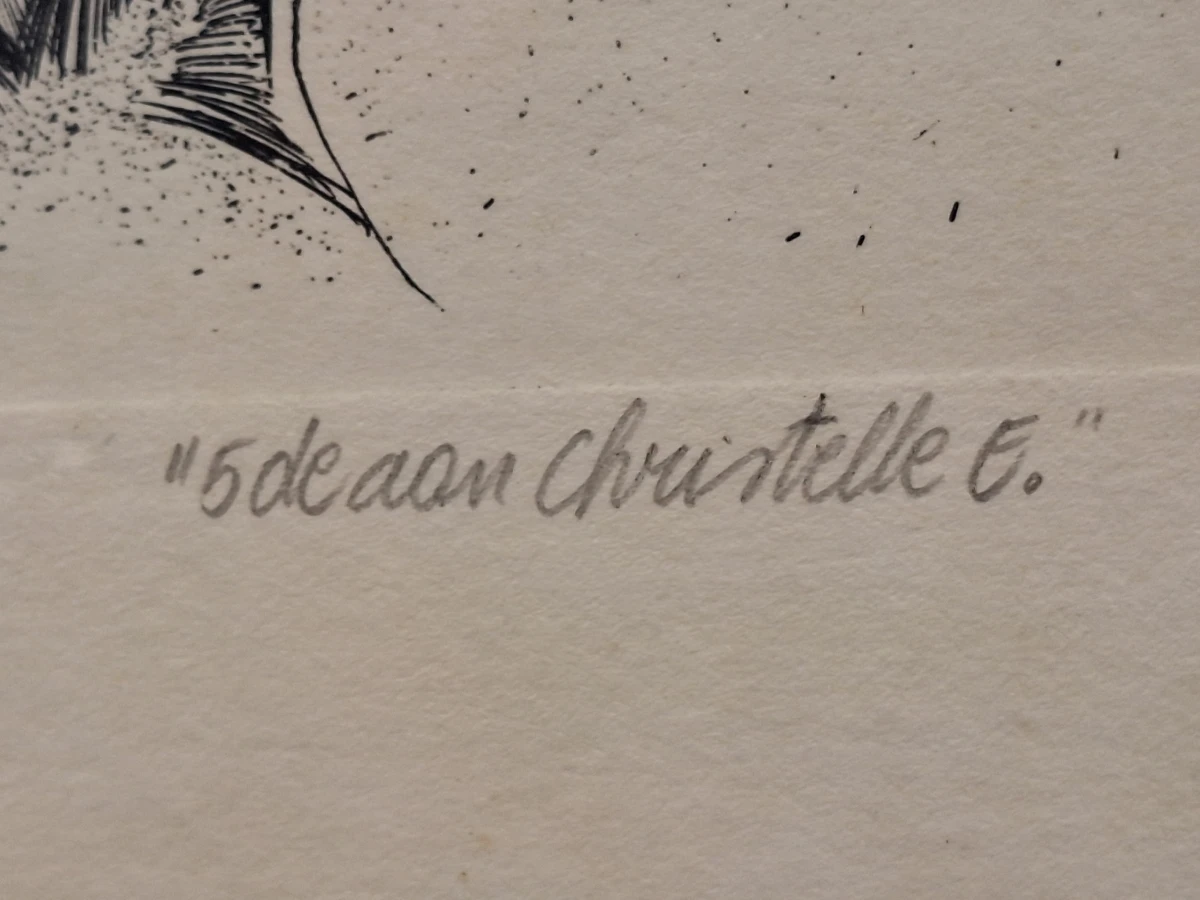 "5de aan Christelle E."